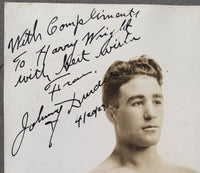 With Compliments
To Harry Wright
with Best Wishes
From
Johnny
4/20/27